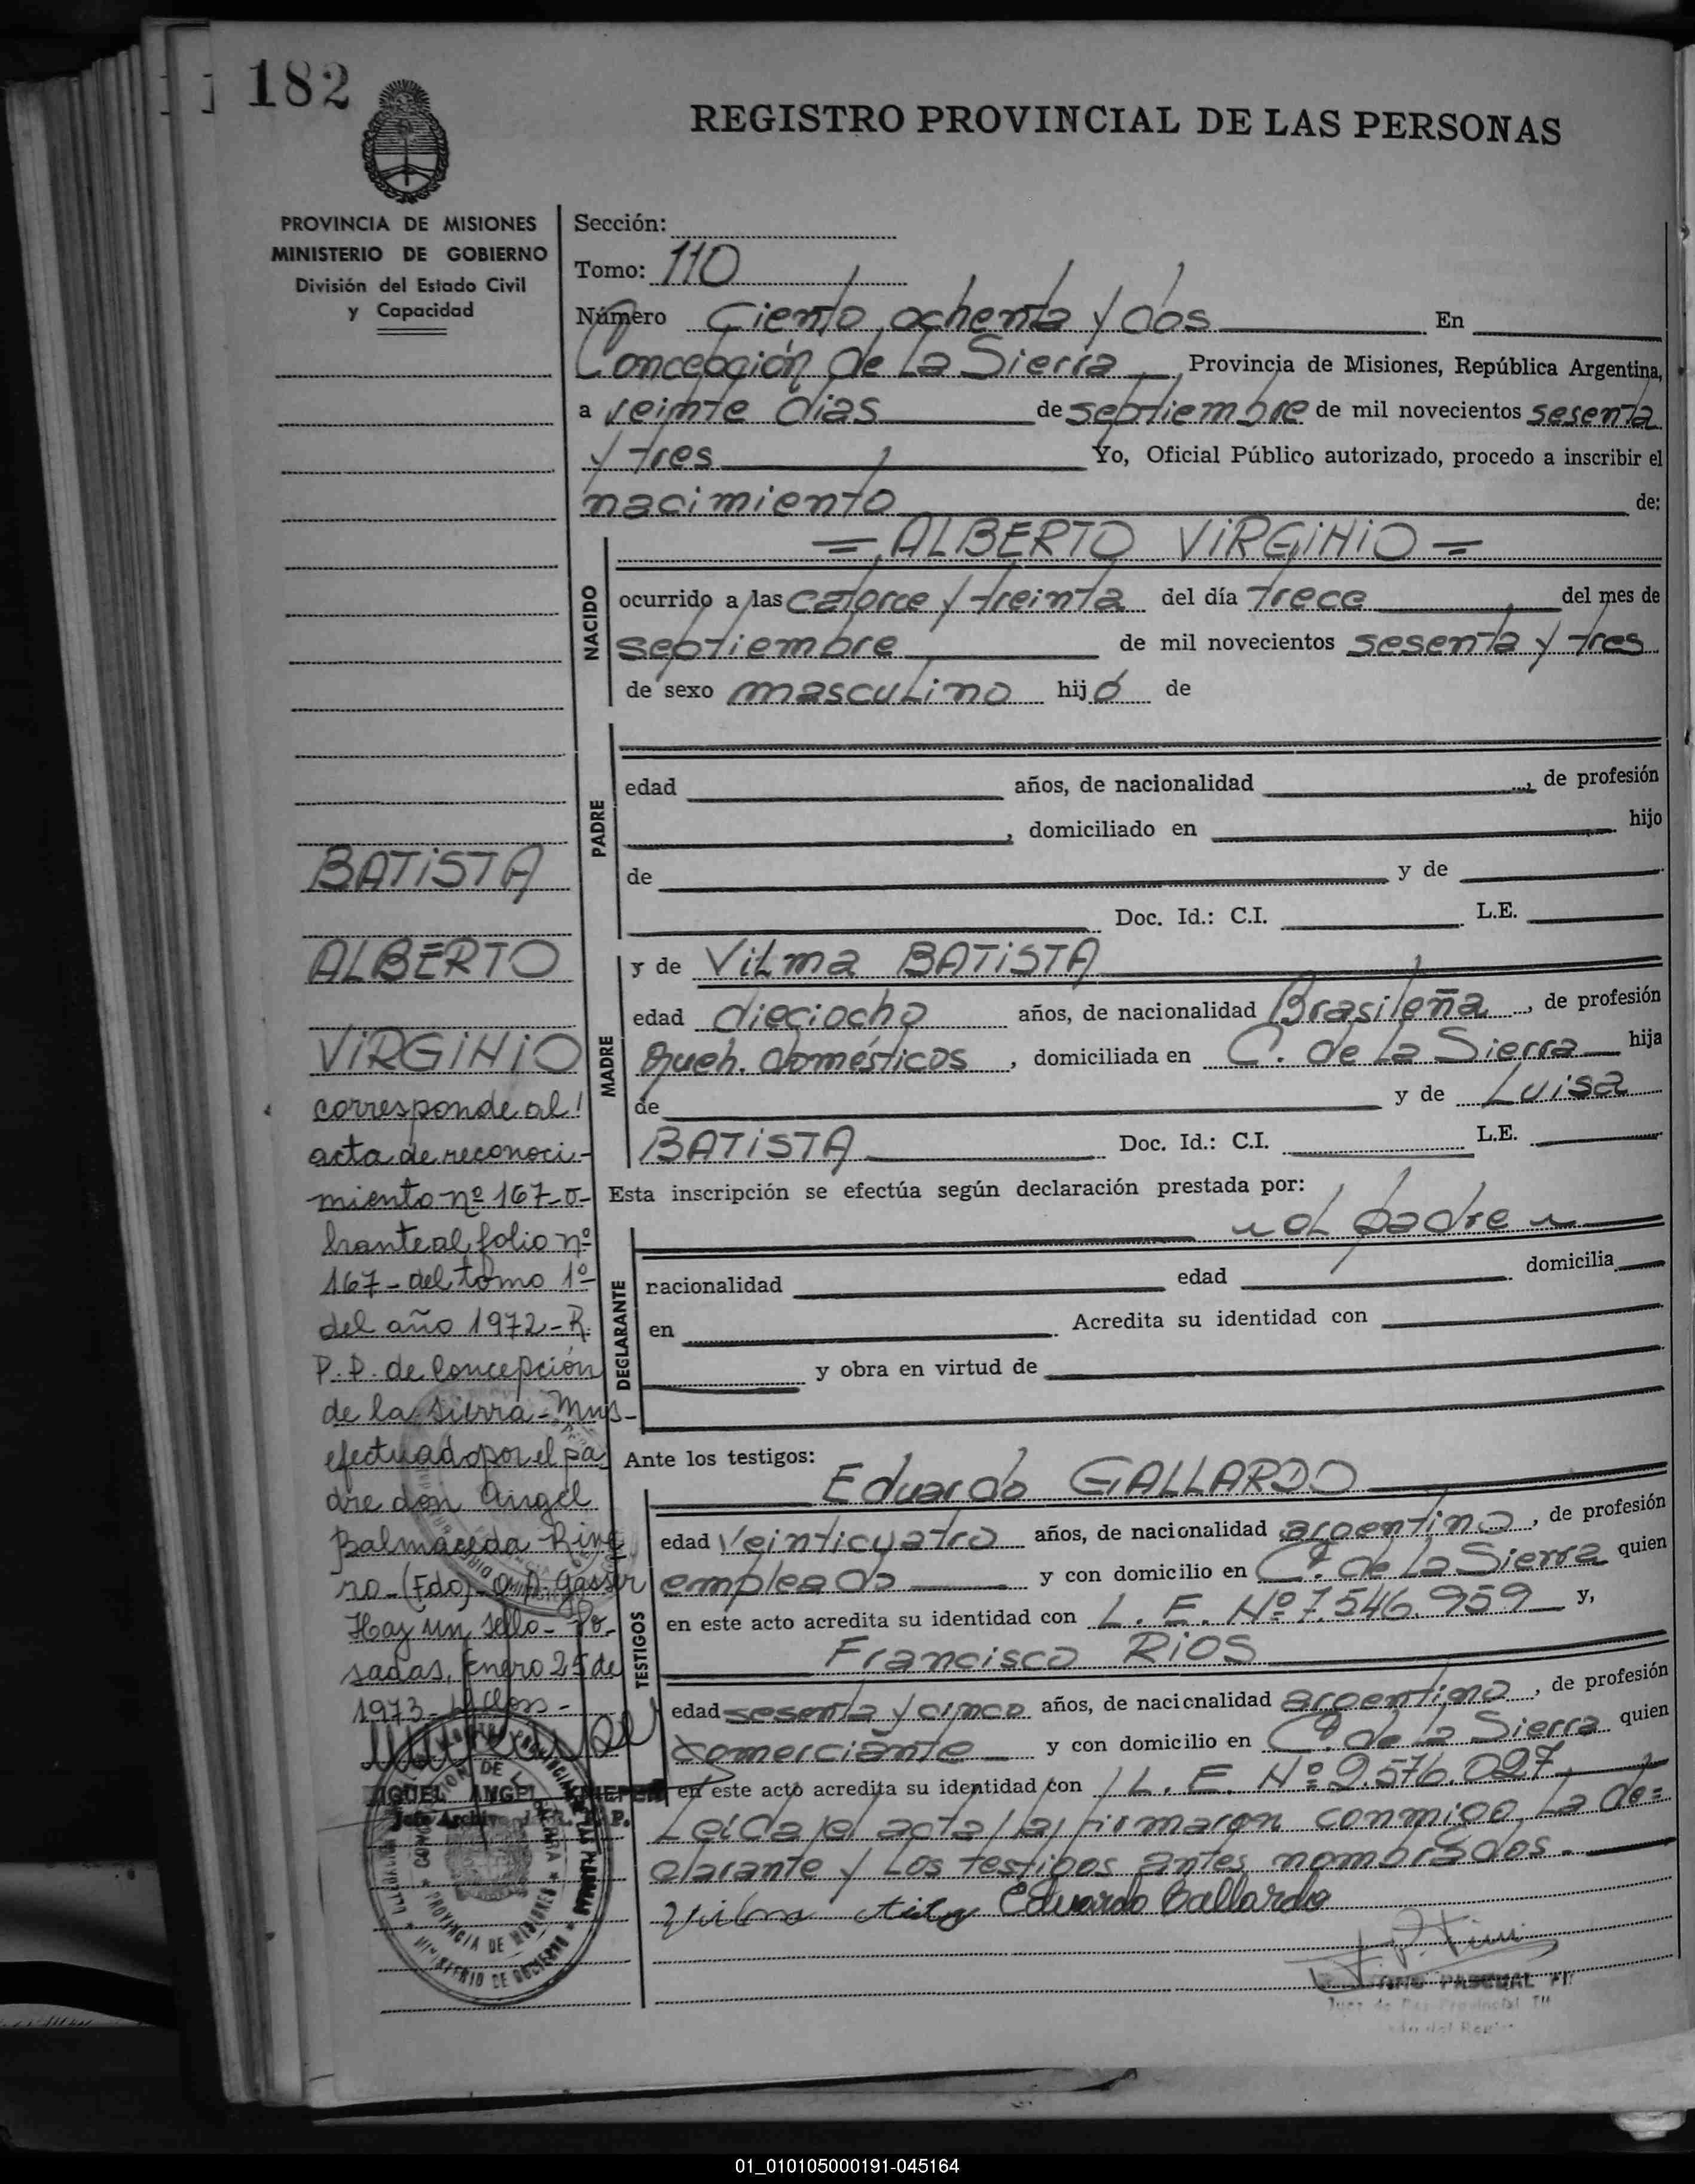 182
REGISTRO PROVINCIAL DE LAS PERSONAS
PROVINCIA DE MISIONES
MINISTERIO DE GOBIERNO
División del Estado Civil
y Capacidad
BATISTA
ALBERTO
VIRGINIO
corresponde al
acta de reconoci-
miento nº 167-o-
brante al folio nº
167- del tomo 1º
del año 1972- R.
P. P. de Concepción
de la Sierra- Mnes-
efectuado por el pa
dre don Angel
Balmaceda Rive
ro-(Fdo)- O. A. Gasser
Hay un sello- Po-
sadas, Enero 25 de
1973-
MIGUEL ANGEL
Jefe Archivo
Sección:
Tomo: 110
Número Ciento ochenta y dos En
Concepción de La Sierra Provincia de Misiones, República Argentina,
a veinte dias de septiembre de mil novecientos sesenta
y tres Yo, Oficial Público autorizado, procedo a inscribir el
nacimiento de:
= ALBERTO VIRGINIO =
NACIDO
ocurrido a las catorce y treinta del día trece del mes de
septiembre de mil novecientos sesenta y tres
de sexo masculino hijo de
PADRE
edad años, de nacionalidad , de profesión
, domiciliado en hijo
de y de
Doc. Id.: C.I. L.E.
MADRE
y de Vilma BATISTA
edad dieciocho años, de nacionalidad Brasileña , de profesión
Queh. domésticos , domiciliada en C. de La Sierra hija
de y de Luisa
BATISTA Doc. Id.: C.I. L.E.
Esta inscripción se efectúa según declaración prestada por:
padre
DECLARANTE
nacionalidad edad domicilia
en Acredita su identidad con
y obra en virtud de
Ante los testigos:
TESTIGOS
Eduardo GALLARDO
edad veinticuatro años, de nacionalidad argentino , de profesión
empleado y con domicilio en C. de La Sierra quien
en este acto acredita su identidad con L. E. Nº 7.546.959 y,
Francisco RIOS
edad sesenta y cinco años, de nacionalidad argentino , de profesión
comerciante y con domicilio en C. de La Sierra quien
en este acto acredita su identidad con L. E. Nº 2.576.027
Leida el acta, la firmaron conmigo La de=
clarante y Los testigos antes nombrados.
Eduardo Gallardo
PASCUAL
Juez de Paz Provincial
PROVINCIA DE MISIONES
MINISTERIO DE GOBIERNO